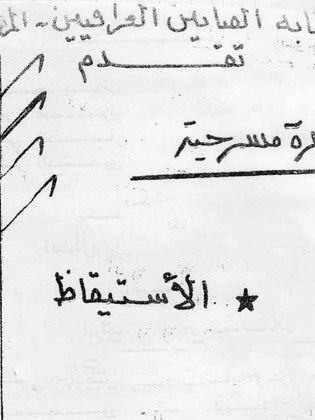 ابه الفنانين العراقيين - المر
تقدم
رة مسرحية
★ الأستيقاظ